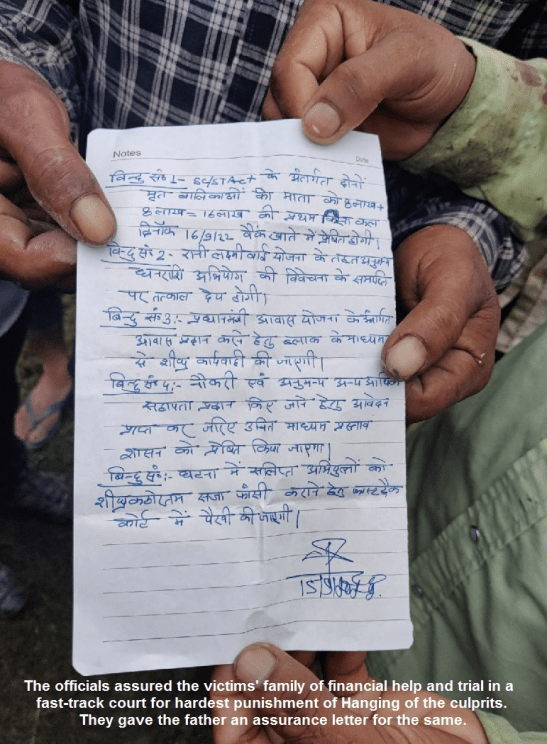 Notes
Date
बिन्दु सं० 1- SC/ST Act के अंतर्गत दोनों
मृत बालिकाओं की माता को 8 लाख +
8 लाख = 16 लाख की प्रथम किस्त कल
दिनांक 16/9/22 बैंक खाते में प्रेषित होगी।
बिन्दु सं० 2- रानी लक्ष्मीबाई योजना के तहत अनुमन्य
धनराशि अभियोग की विवेचना के समाप्ति
पर तत्काल देय होगी।
बिन्दु सं० 3:- प्रधानमंत्री आवास योजना के अंतर्गत
आवास प्रदान करने हेतु ब्लाक के माध्यम
से शीघ्र कार्यवाही की जाएगी।
बिन्दु सं० 4:- नौकरी एवं अनुमन्य अन्य आर्थिक
सहायता प्रदान किए जाने हेतु आवेदन
प्राप्त कर जरिए उचित माध्यम प्रस्ताव
शासन को प्रेषित किया जाएगा।
बिन्दु सं०:- घटना में संलिप्त अभियुक्तों को
शीघ्र कठोरतम सजा फांसी कराने हेतु फास्टट्रैक
कोर्ट में पैरवी की जाएगी।
The officials assured the victims' family of financial help and trial in a
fast-track court for hardest punishment of Hanging of the culprits.
They gave the father an assurance letter for the same.